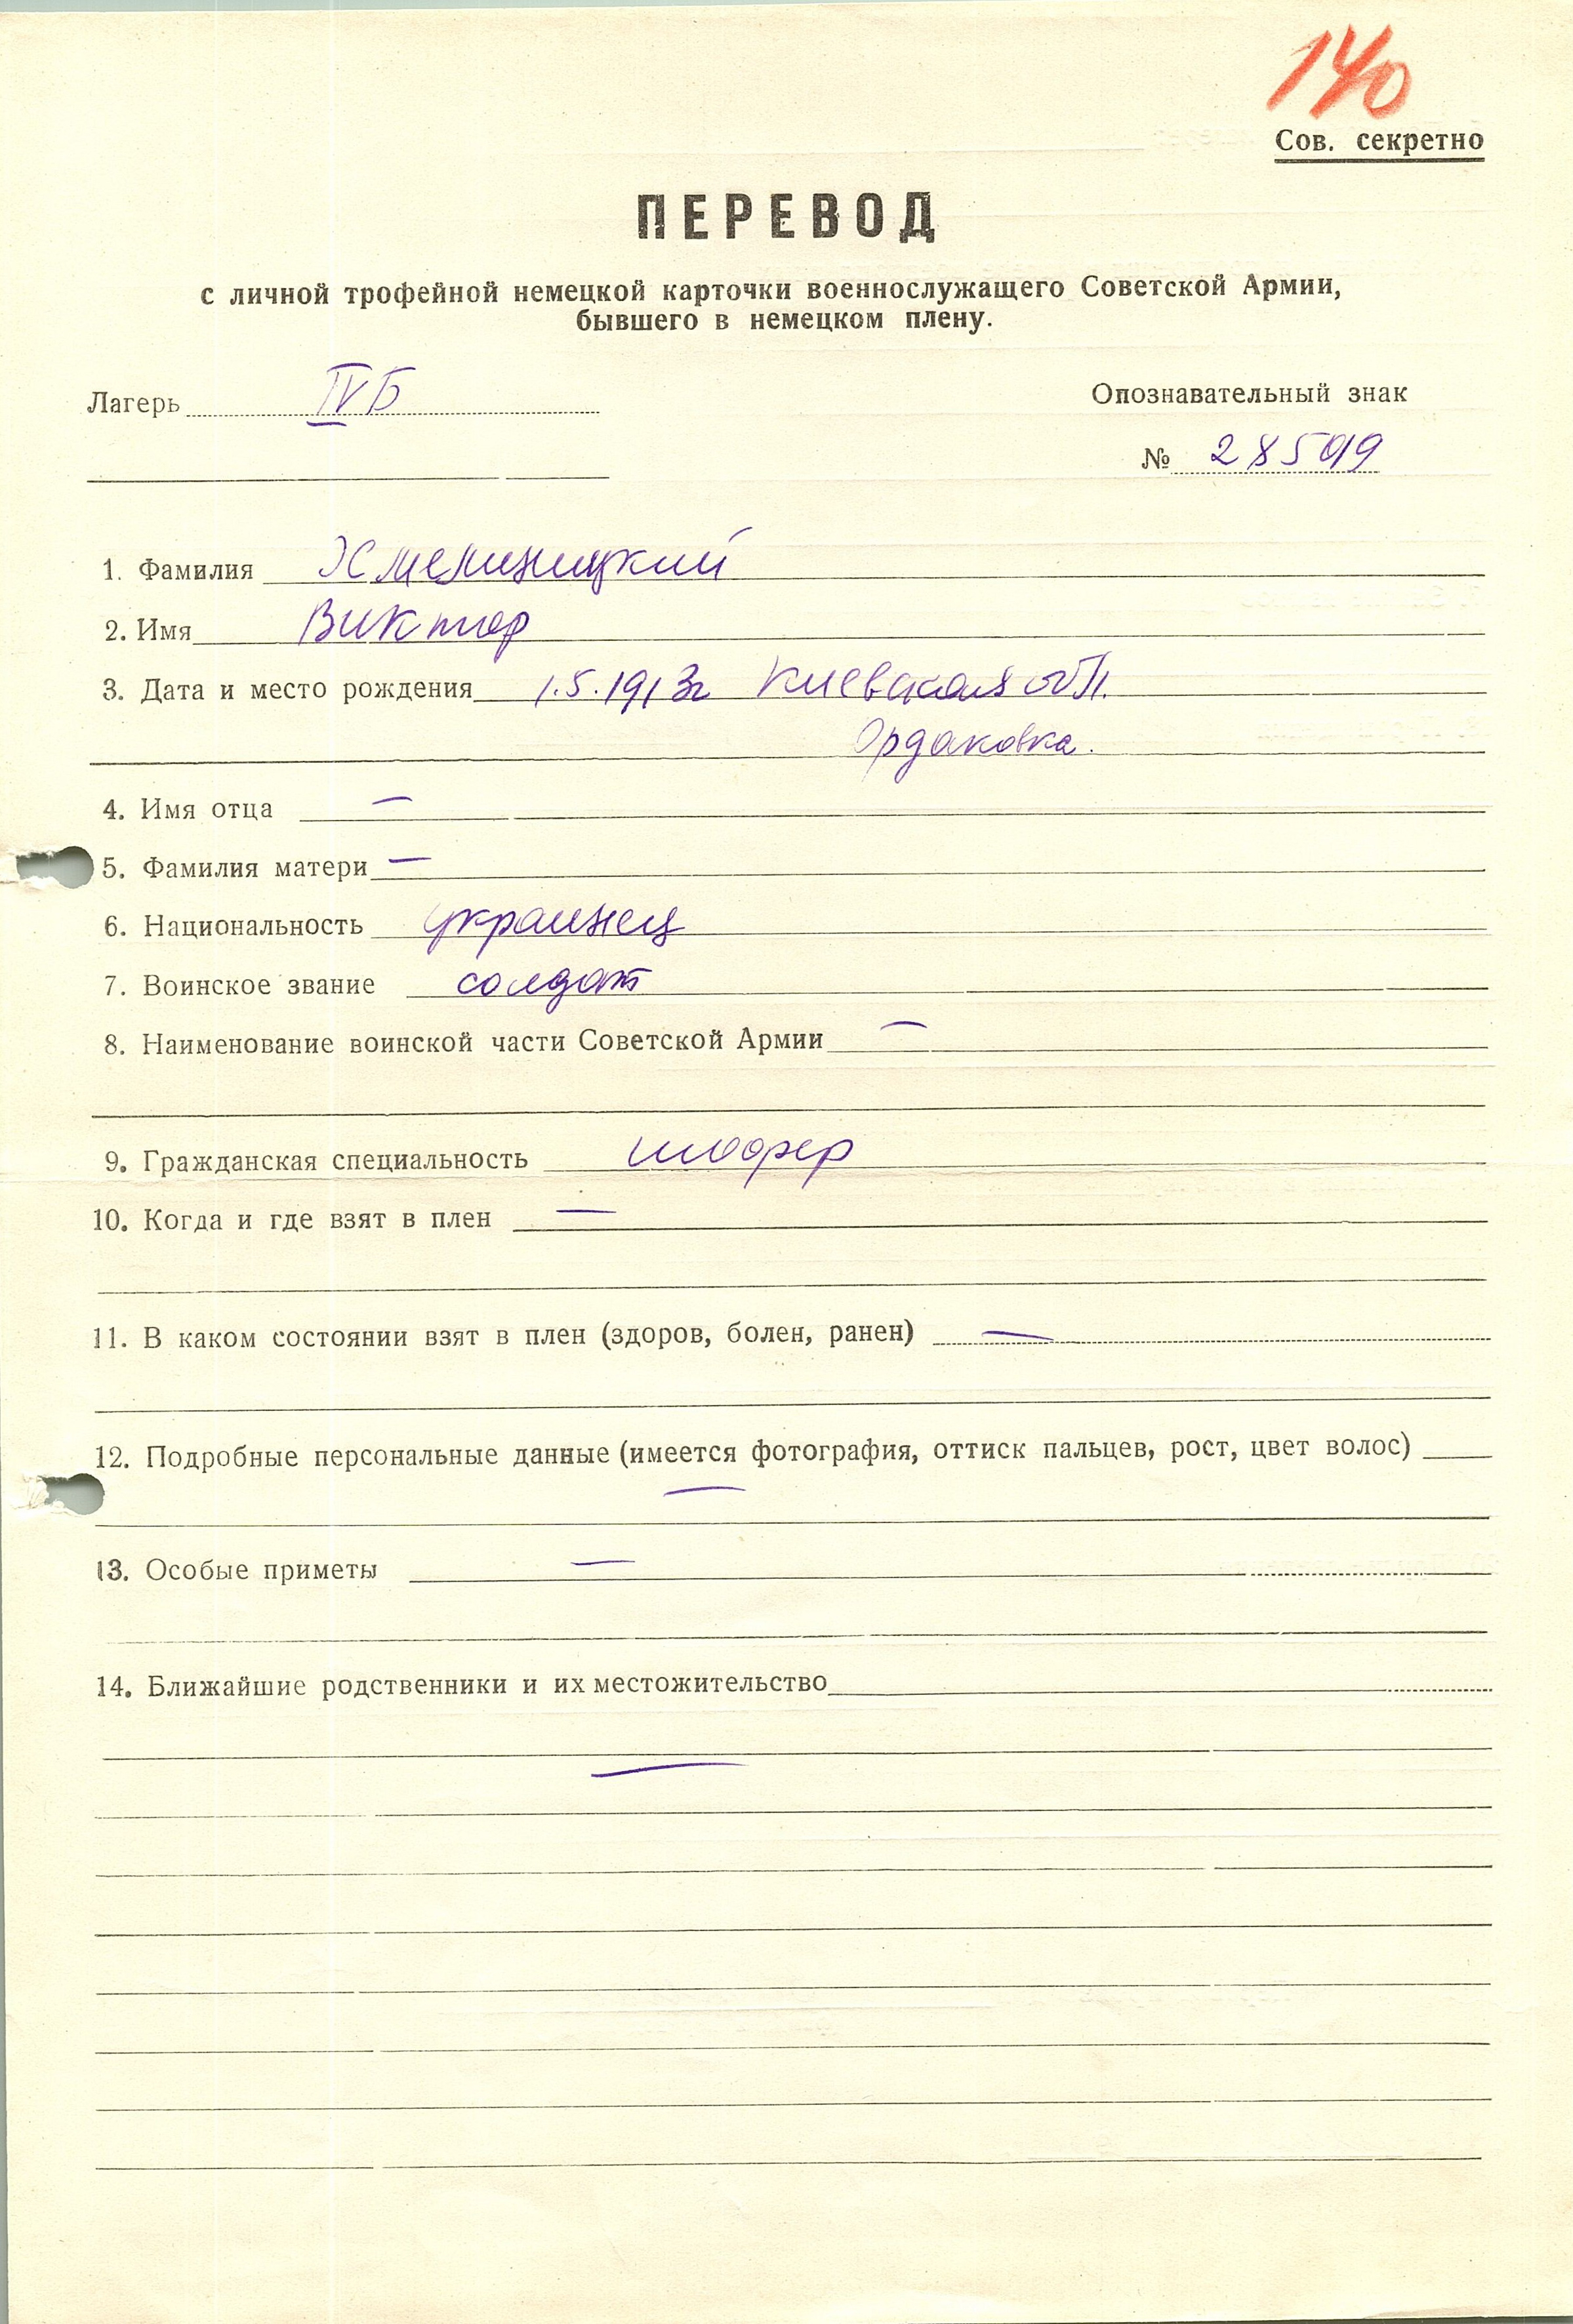 140
Сов. секретно
ПЕРЕВОД
с личной трофейной немецкой карточки военнослужащего Советской Армии,
бывшего в немецком плену.
Лагерь IVБ
Опознавательный знак
№ 28599
1. Фамилия Хмелиницкий
2. Имя Виктор
3. Дата и место рождения 1.5.1913г Киевская обл.
Ордаковка.
4. Имя отца —
5. Фамилия матери —
6. Национальность украинец
7. Воинское звание солдат
8. Наименование воинской части Советской Армии —
9. Гражданская специальность шофер
10. Когда и где взят в плен —
11. В каком состоянии взят в плен (здоров, болен, ранен) —
12. Подробные персональные данные (имеется фотография, оттиск пальцев, рост, цвет волос)
—
13. Особые приметы —
14. Ближайшие родственники и их местожительство
—